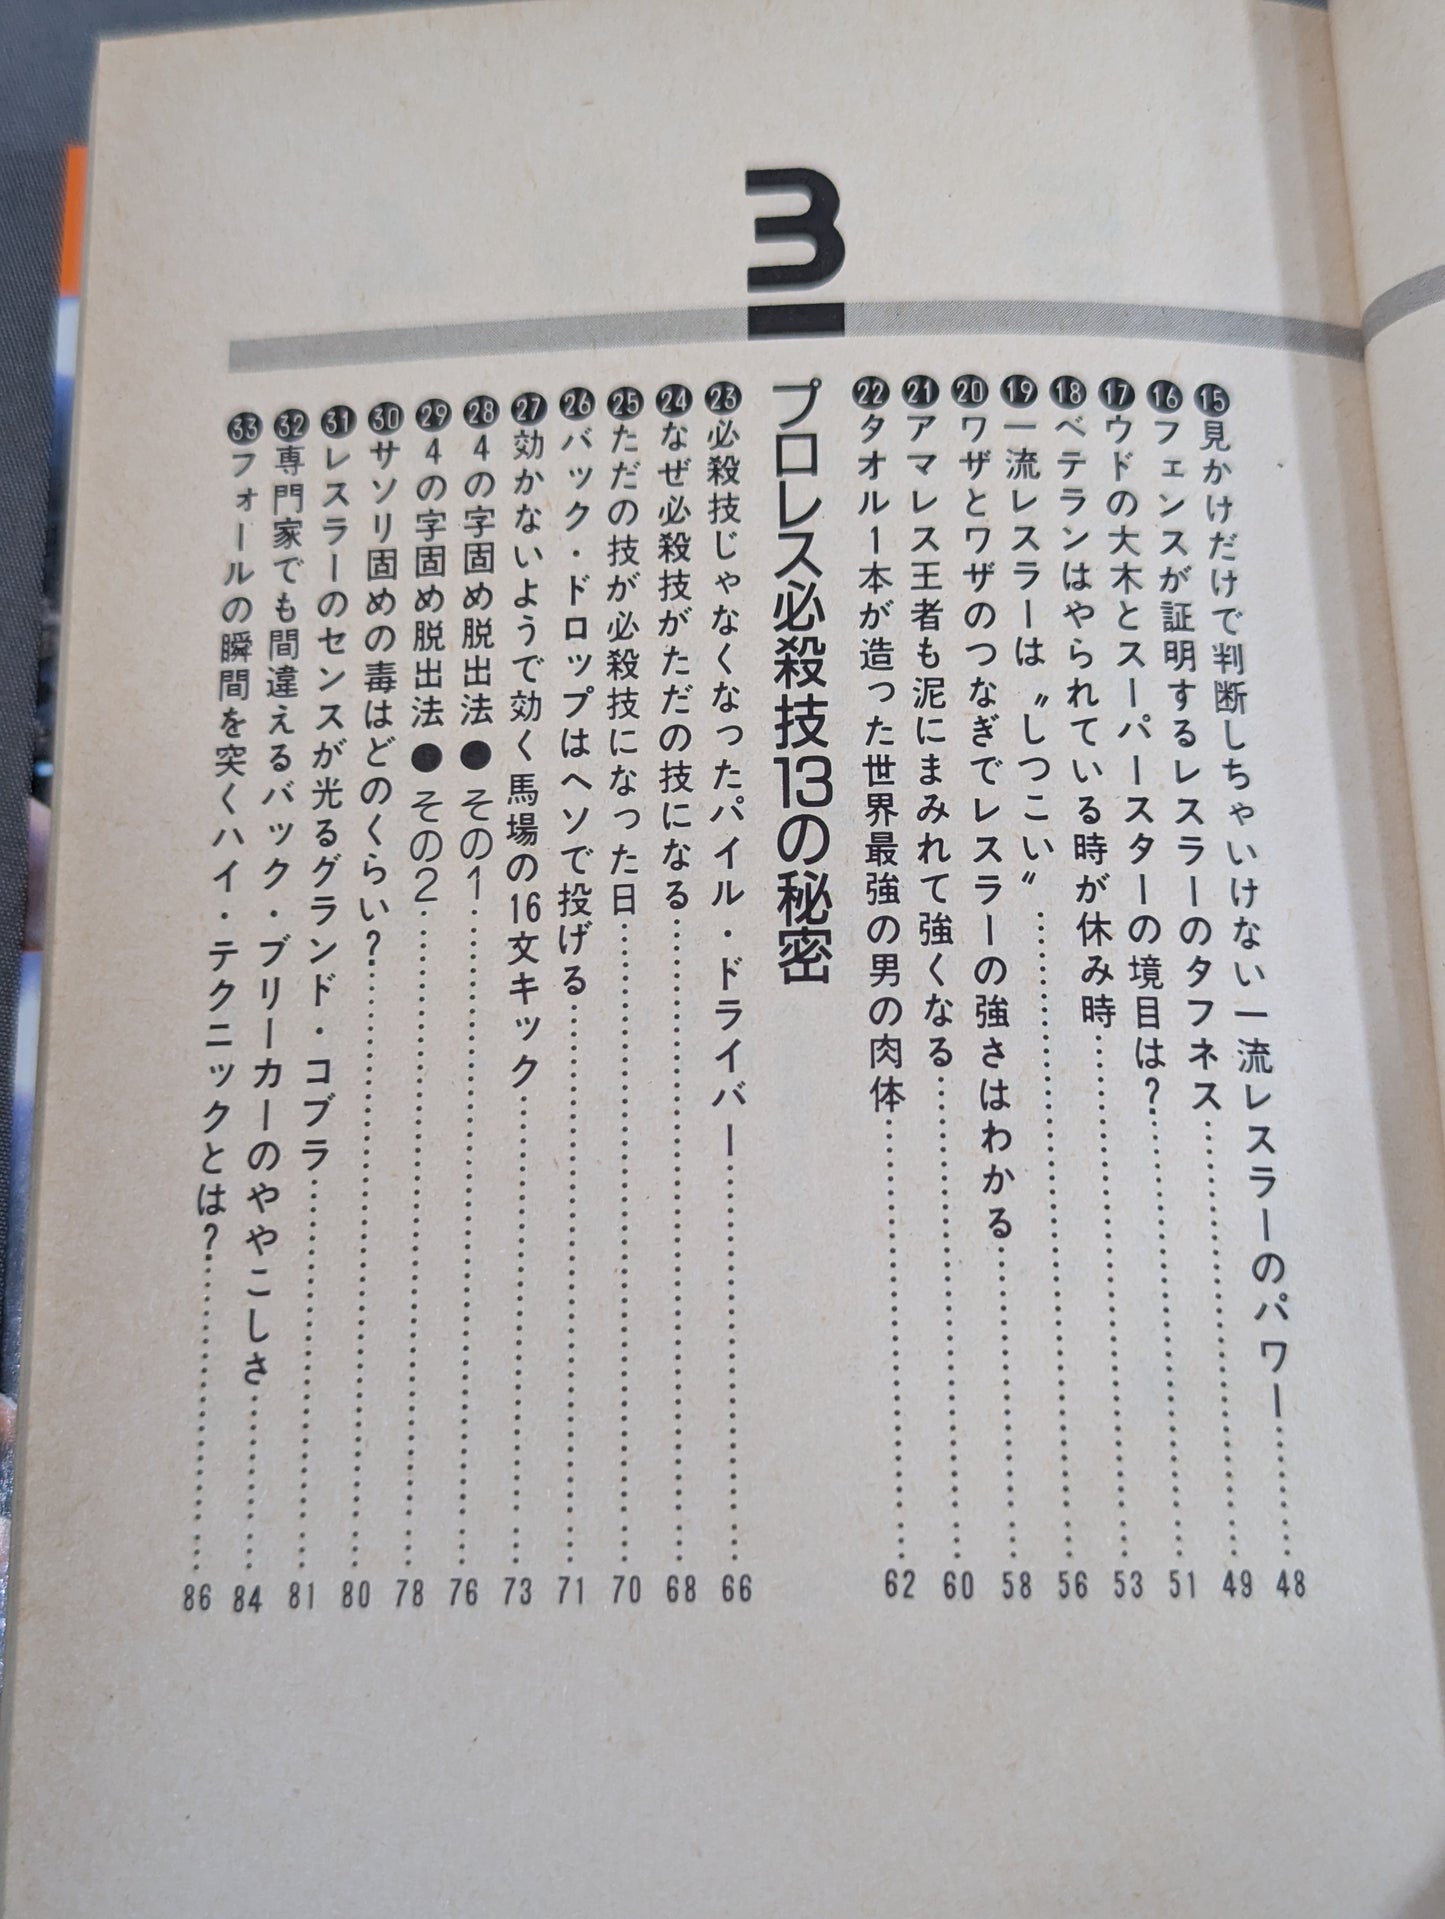 ⓯見かけだけで判断しちゃいけない一流レスラーのパワー……48
⓰フェンスが証明するレスラーのタフネス……49
⓱ウドの大木とスーパースターの境目は？……51
⓲ベテランはやられている時が休み時……53
⓳一流レスラーは〝しつこい〟……56
⓴ワザとワザのつなぎでレスラーの強さはわかる……58
㉑アマレス王者も泥にまみれて強くなる……60
㉒タオル1本が造った世界最強の男の肉体……62
3
プロレス必殺技13の秘密
㉓必殺技じゃなくなったパイル・ドライバー……66
㉔なぜ必殺技がただの技になる……68
㉕ただの技が必殺技になった日……70
㉖バック・ドロップはヘソで投げる……71
㉗効かないようで効く馬場の16文キック……73
㉘4の字固め脱出法●その1……76
㉙4の字固め脱出法●その2……78
㉚サソリ固めの毒はどのくらい？……80
㉛レスラーのセンスが光るグランド・コブラ……81
㉜専門家でも間違えるバック・ブリーカーのややこしさ……84
㉝フォールの瞬間を突くハイ・テクニックとは？……86